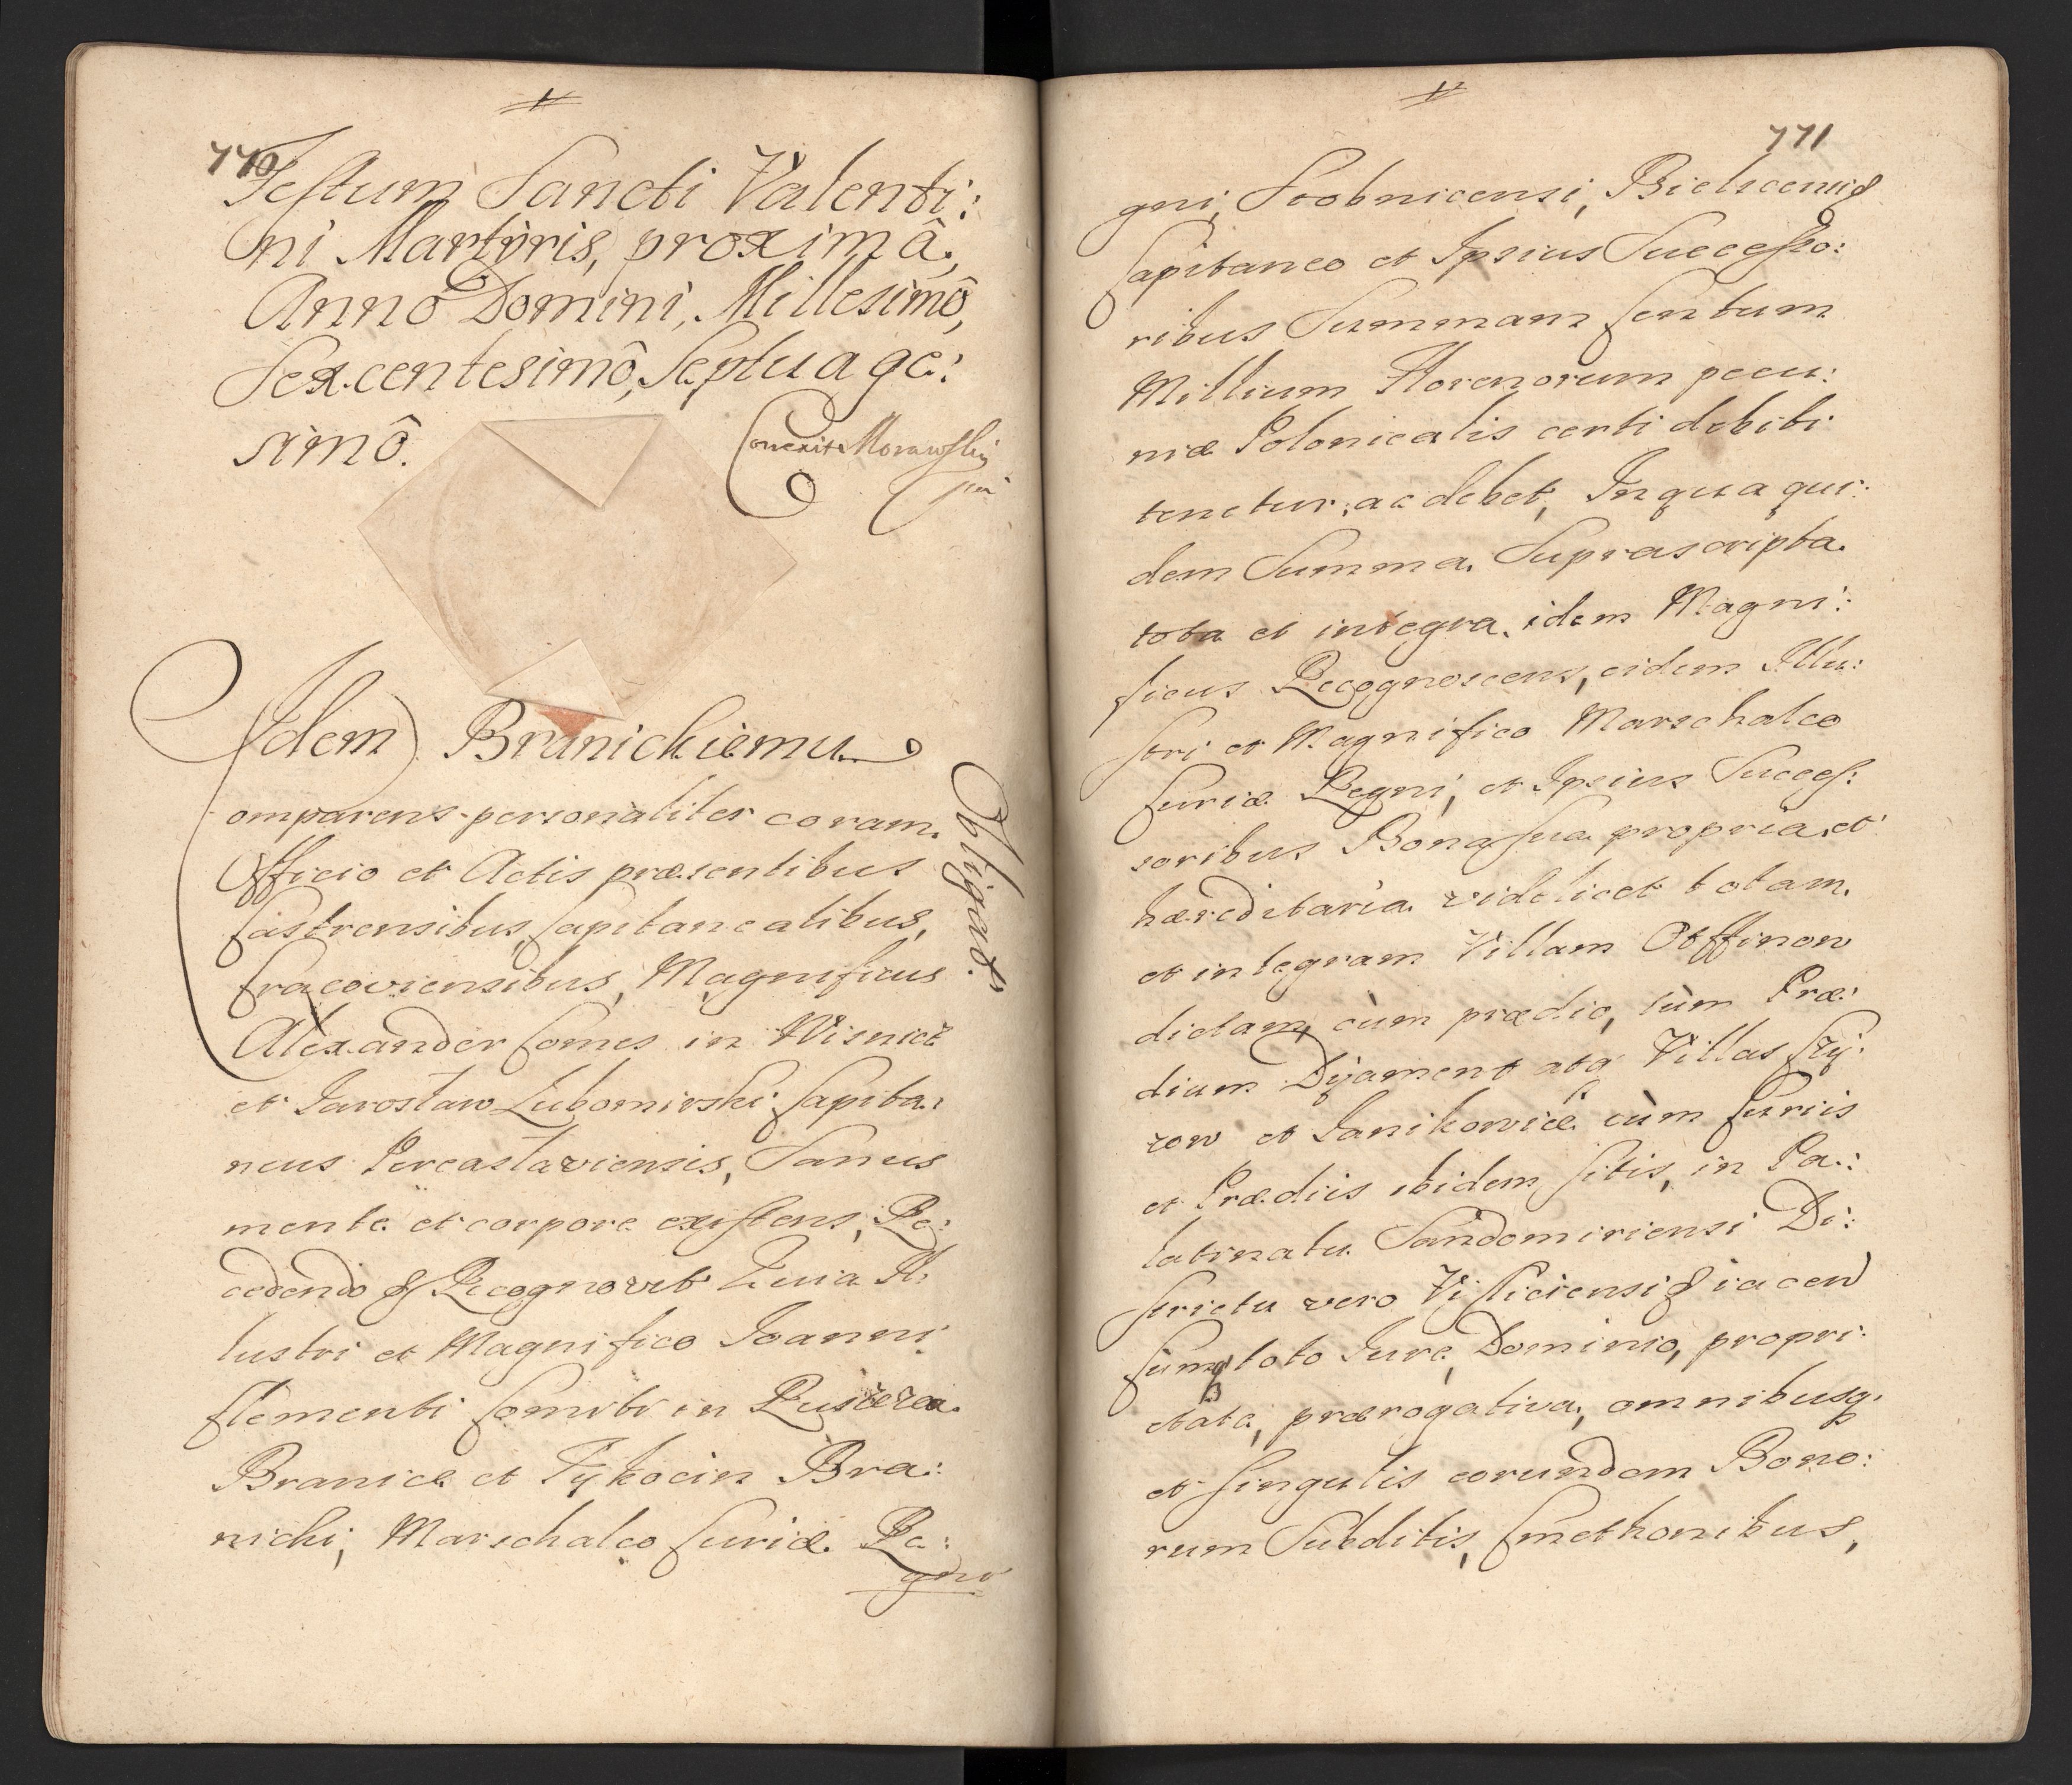 770
Festum Sancti Valenti:
ni Martyris, proximâ,
Anno Domini, Millesimô,
Sexcentesimô, Septuage:
simô.
Conexit Morawski
mp
Idem Branickiemu
Obligat.
omparens personaliter coram
Officio et Actis præsentibus
Castrensibus, Capitanealibus,
Cracoviensibus, Magnificus
Alexander Comes in Wisnicz
et Jarosław Lubomirski Capita:
neus Pereasłaviensis, Sanus
mente et corpore existens, Re:
cedendo & Recognovit Quia Il:
lustri et Magnifico Joanni
Clementi Comiti in Ruszcza
Branice et Tykocin Bra:
nicki, Marschalco Curiæ Re:
gni
771
gni, Stobnicensi, Bielscensiq
Capitaneo et Ipsius Successo:
ribus Summam Centum
Millium Florenorum pecu:
niæ Polonicalis certi debiti
tenetur, ac debet, In qua qui:
dem Summa Suprascripta
tota et integra idem Magni:
ficus Recognoscens, eidem Illu:
stri et Magnifico Marschalco
Curiæ Regni, et Ipsius Succes:
soribus Bona sua propria et
hæreditaria videlicet totam
et integram Villam Otffinow
dictam, cùm prædio, tùm Præ:
dium Dyament atq Villas Czy:
zow et Janikowicẽ cùm Curiis
et Prædiis ibidem sitis, in Pa:
latinatu Sandomiriensi Di:
strictu vero Visliciensi & iacen
Cumq toto Iure, Dominio, propri:
etate, prærogativa, omnibusq
et singulis eorundem Bono:
rum Subditis, Cmethonibus,